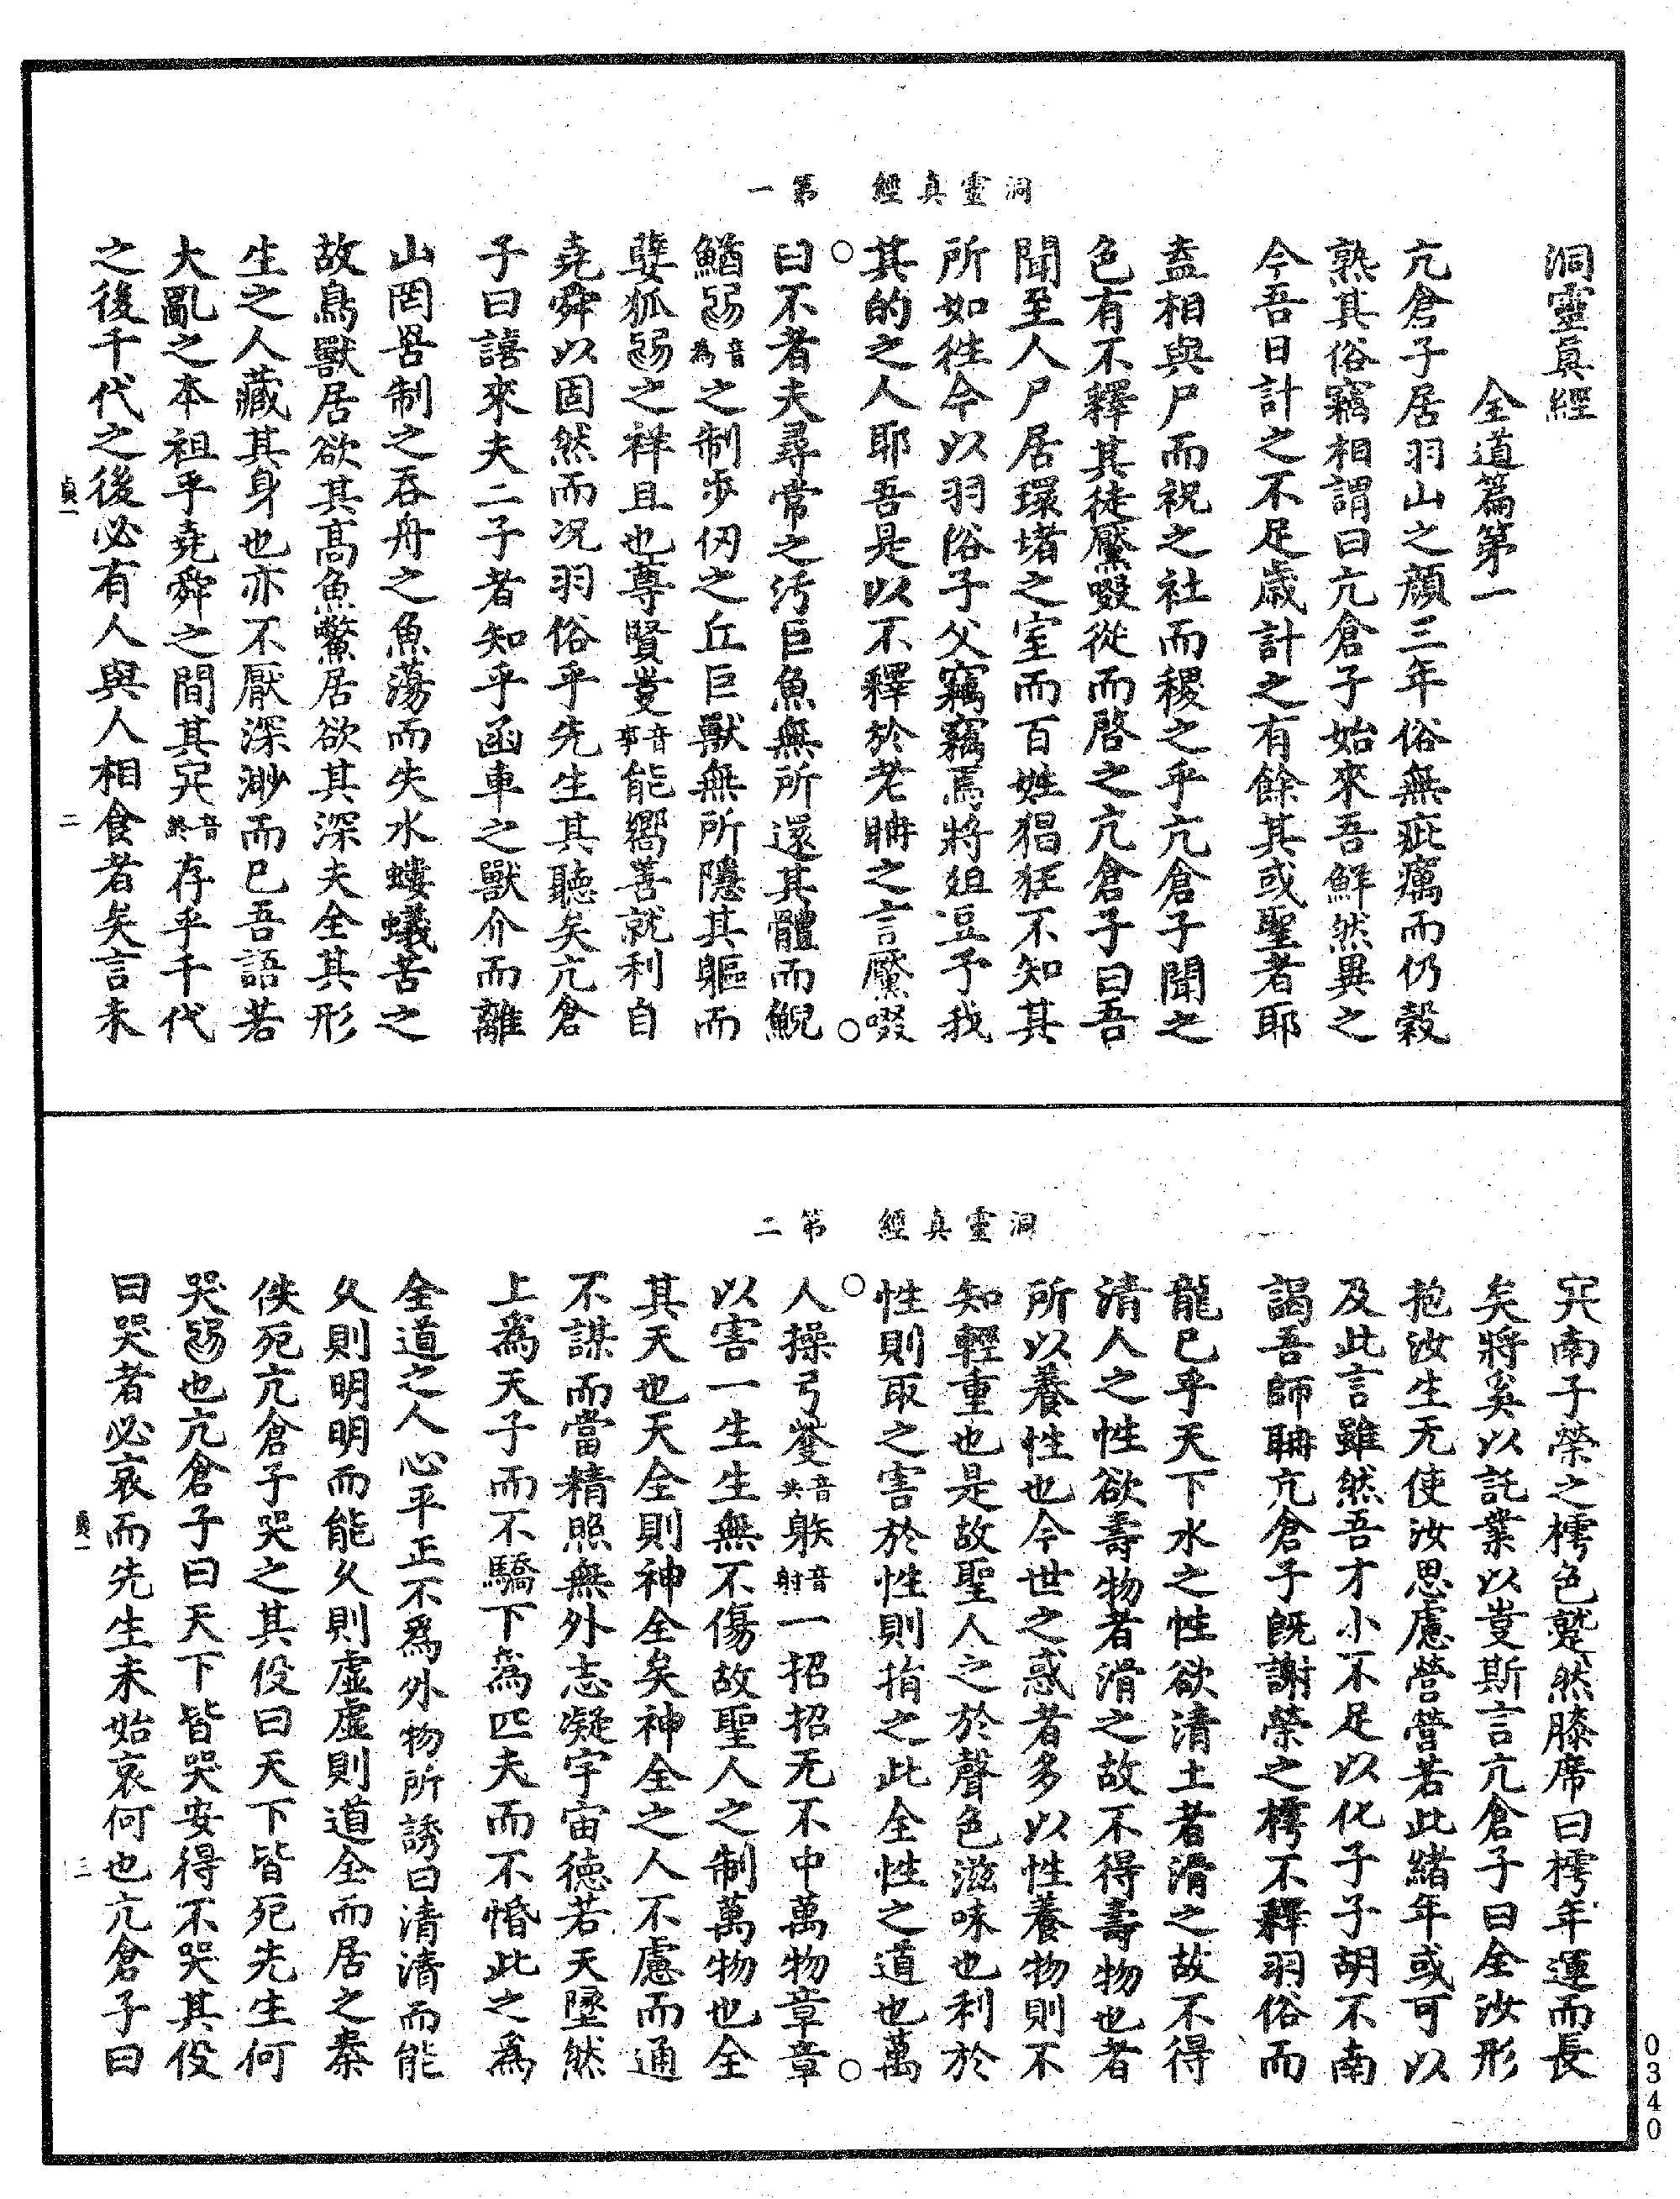 洞靈真經　第一
洞靈真經
全道篇第一
亢倉子居羽山之顏三年俗無疵癘而仍穀
熟其俗竊相謂曰亢倉子始來吾鮮然異之
今吾日計之不足歲計之有餘其或聖者耶
盍相與尸而祝之社而稷之乎亢倉子聞之
色有不釋其徒厬啜從而啓之亢倉子曰吾
聞至人尸居環堵之室而百姓猖狂不知其
所如往今以羽俗子父竊竊焉將俎豆予我
其的之人耶吾是以不釋於老聃之言厬啜
曰不者夫尋常之污巨魚無所還其體而鯢
鰌音為之制步仞之丘巨獸無所隱其軀而
㜸狐之祥且也尊賢㕝音事能嚮善就利自
堯舜以固然而況羽俗乎先生其聽矣亢倉
子曰譆來夫二子者知乎函車之獸介而離
山罔罟制之吞舟之魚蕩而失水螻蟻苦之
故鳥獸居欲其高魚鱉居欲其深夫全其形
生之人藏其身也亦不厭深渺而已吾語若
大亂之本祖乎堯舜之間其㝠音終存乎千代
之後千代之後必有人與人相食者矣言未
貞一
二
洞靈真經　第二
㝠南子榮之樗色蹵然膝席曰樗年運而長
矣將奚以託業以㕝斯言亢倉子曰全汝形
抱汝生无使汝思慮營營若此緒年或可以
及此言雖然吾才小不足以化子子胡不南
謁吾師聃亢倉子既謝榮之樗不釋羽俗而
龍已乎天下水之性欲清土者滑之故不得
清人之性欲壽物者滑之故不得壽物也者
所以養性也今世之惑者多以性養物則不
知輕重也是故聖人之於聲色滋味也利於
性則取之害於性則捐之此全性之道也萬
人操弓音共躲音射一招招无不中萬物章章
以害一生生無不傷故聖人之制萬物也全
其天也天全則神全矣神全之人不慮而通
不謀而當精照無外志凝宇宙德若天墬然
上為天子而不驕下為匹夫而不惛此之為
全道之人心平正不為外物所誘曰清清而能
久則明明而能久則虛虛則道全而居之秦
佚死亢倉子哭之其役曰天下皆死先生何
哭也亢倉子曰天下皆哭安得不哭其役
曰哭者必哀而先生未始哀何也亢倉子曰
貞一
三
0340